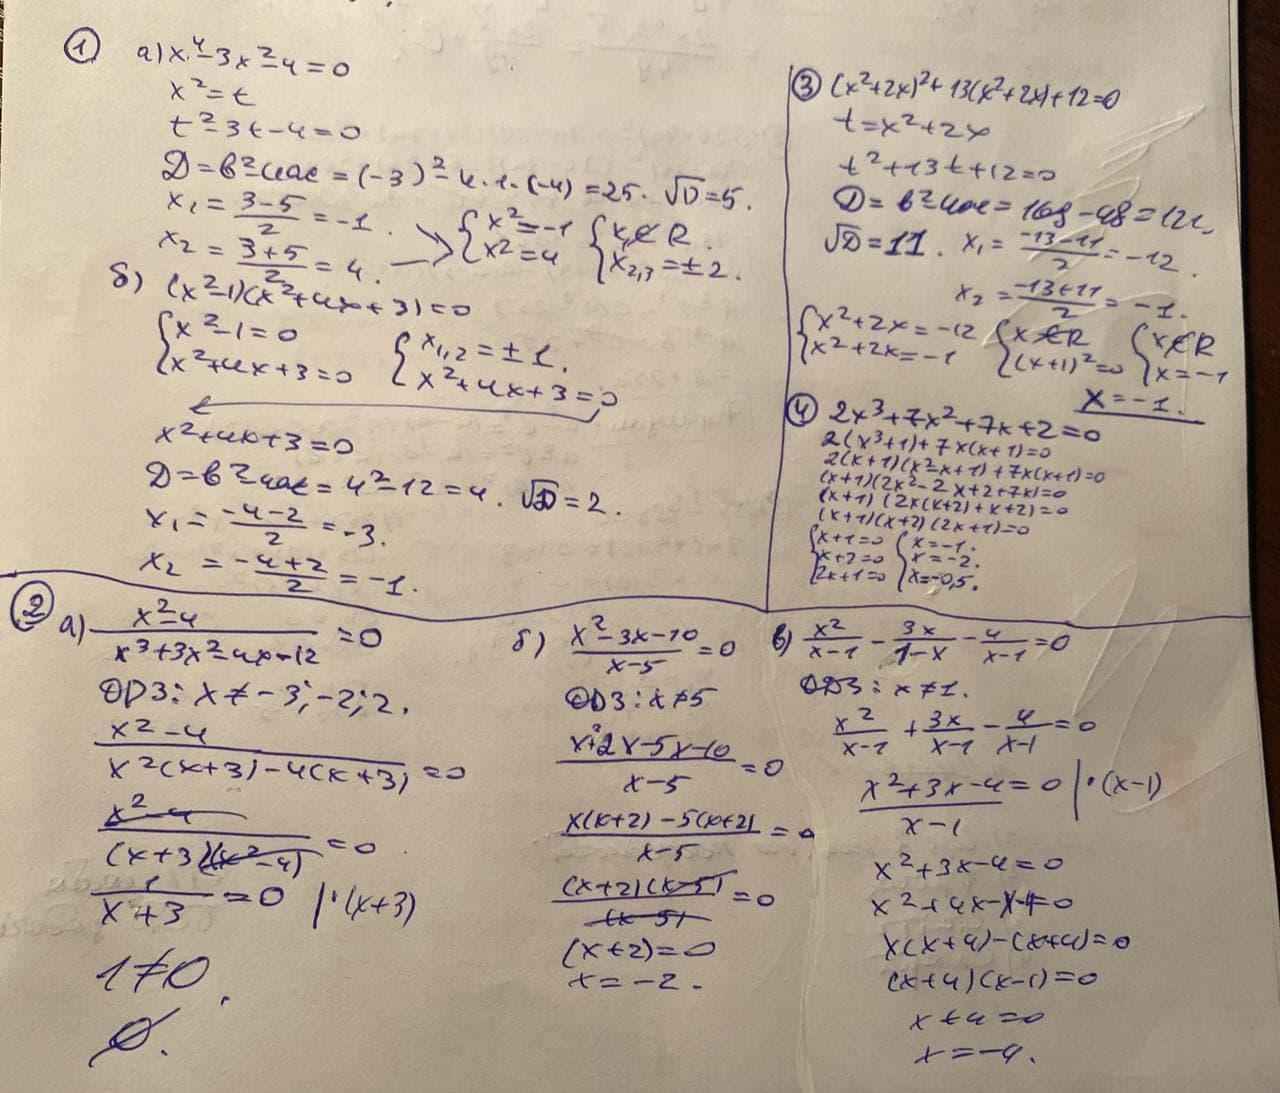 ①
а) x⁴-3x²-4=0
x²=t
t²-3t-4=0
D=b²-4ac=(-3)²-4·1·(-4)=25. √D=5.
x₁=(3-5)/2=-1.
x₂=(3+5)/2=4. → {x²=-1 x²=4 {x₁∉R. x₂,₃=±2.
б) (x²-1)(x²+4x+3)=0
{x²-1=0 x²+4x+3=0 {x₁,₂=±1. x²+4x+3=0
x²+4x+3=0
D=b²-4ac=4²-12=4. √D=2.
x₁=(-4-2)/2=-3.
x₂=(-4+2)/2=-1.
③ (x²+2x)²+13(x²+2x)+12=0
t=x²+2x
t²+13t+12=0
D=b²-4ac=169-48=121.
√D=11. x₁=(-13-11)/2=-12.
x₂=(-13+11)/2=-1.
{x²+2x=-12 x²+2x=-1 {x∉R (x+1)²=0 {x∉R x=-1
x=-1.
④ 2x³+7x²+7x+2=0
2(x³+1)+7x(x+1)=0
2(x+1)(x²-x+1)+7x(x+1)=0
(x+1)(2x²-2x+2+7x)=0
(x+1)(2x(x+2)+x+2)=0
(x+1)(x+2)(2x+1)=0
{x+1=0 x+2=0 2x+1=0 {x=-1. x=-2. x=-0,5.
②
а) (x²-4)/(x³+3x²-4x-12)=0
ОДЗ: x≠-3;-2;2.
(x²-4)/(x²(x+3)-4(x+3))=0
(x²-4)/((x+3)(x²-4))=0
1/(x+3)=0 |·(x+3)
1≠0.
∅.
б) (x²-3x-10)/(x-5)=0
ОДЗ: x≠5
(x²+2x-5x-10)/(x-5)=0
(x(x+2)-5(x+2))/(x-5)=0
((x+2)(x-5))/(x-5)=0
(x+2)=0
x=-2.
в) x²/(x-1)-3x/(1-x)-4/(x-1)=0
ОДЗ: x≠1.
x²/(x-1)+3x/(x-1)-4/(x-1)=0
(x²+3x-4)/(x-1)=0 |·(x-1)
x²+3x-4=0
x²+4x-x-4=0
x(x+4)-(x+4)=0
(x+4)(x-1)=0
x+4=0
x=-4.